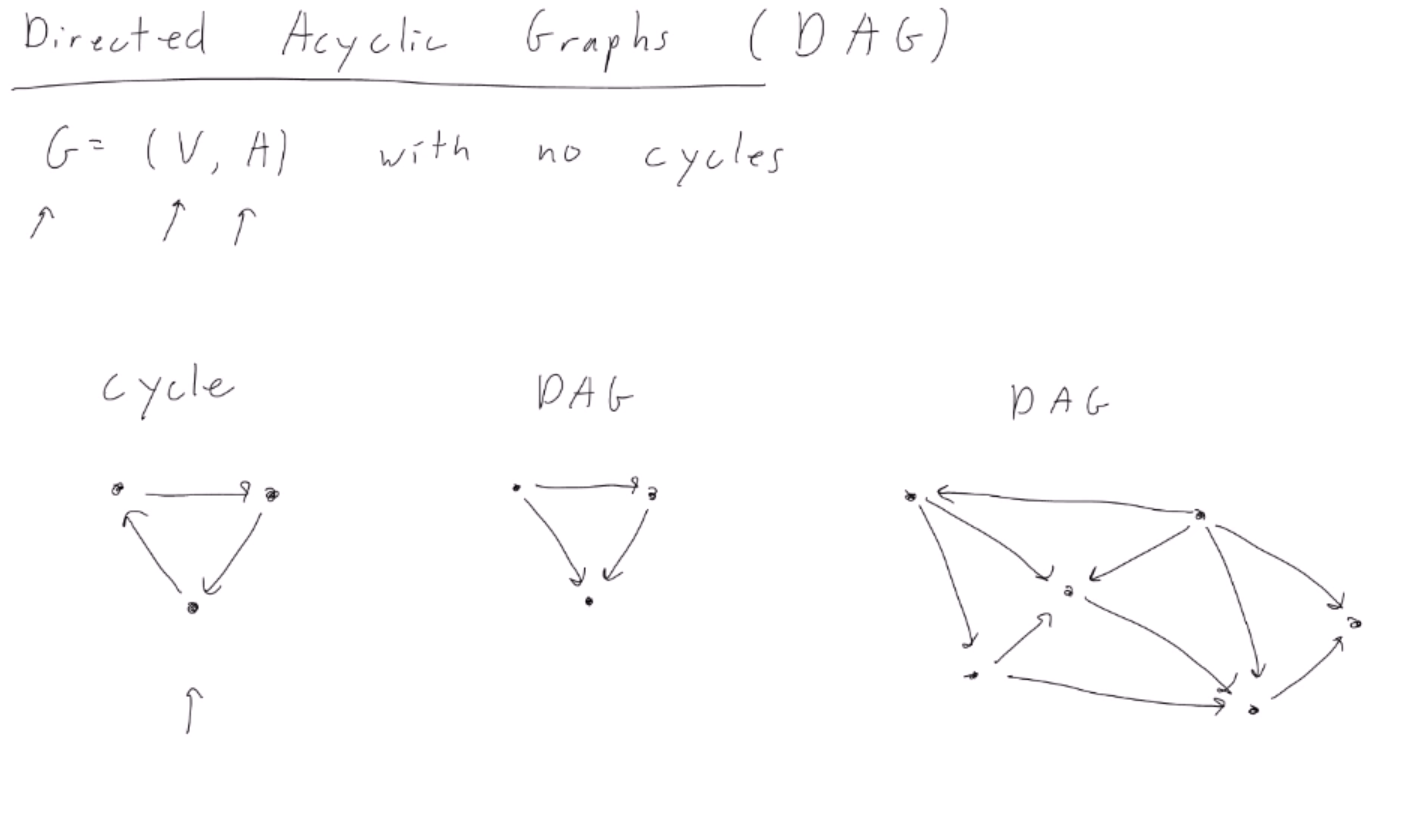 Directed Acyclic Graphs (DAG)
G= (V, A) with no cycles
cycle DAG DAG